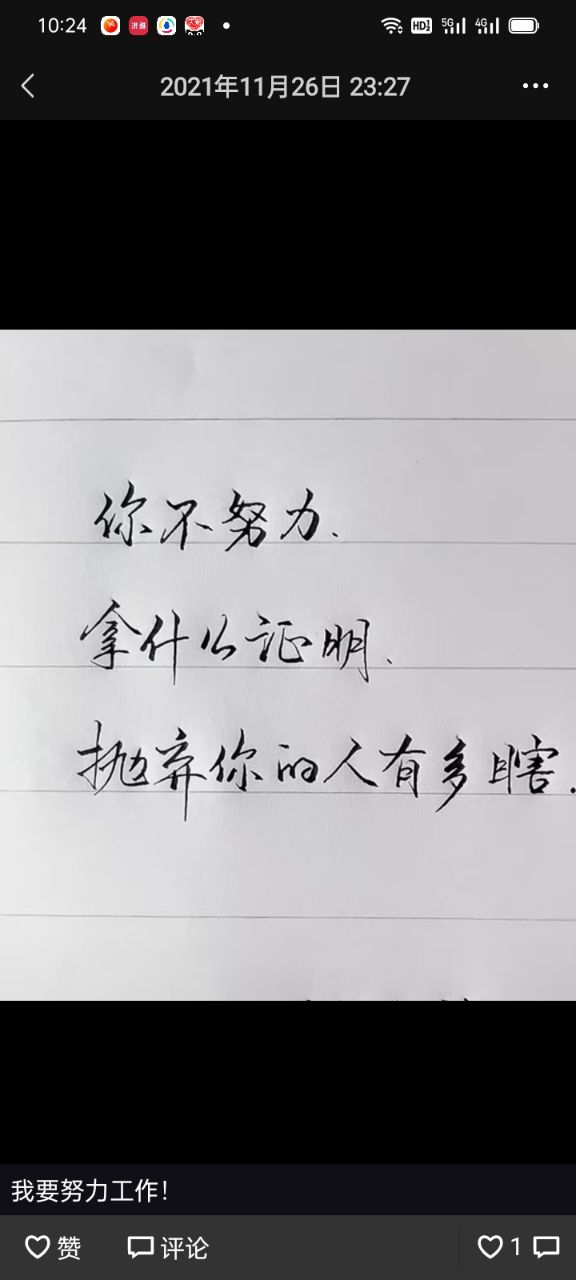 10:24
HD 5G 4G
2021年11月26日 23:27
你不努力.
拿什么证明.
抛弃你的人有多瞎.
我要努力工作!
赞 评论 1